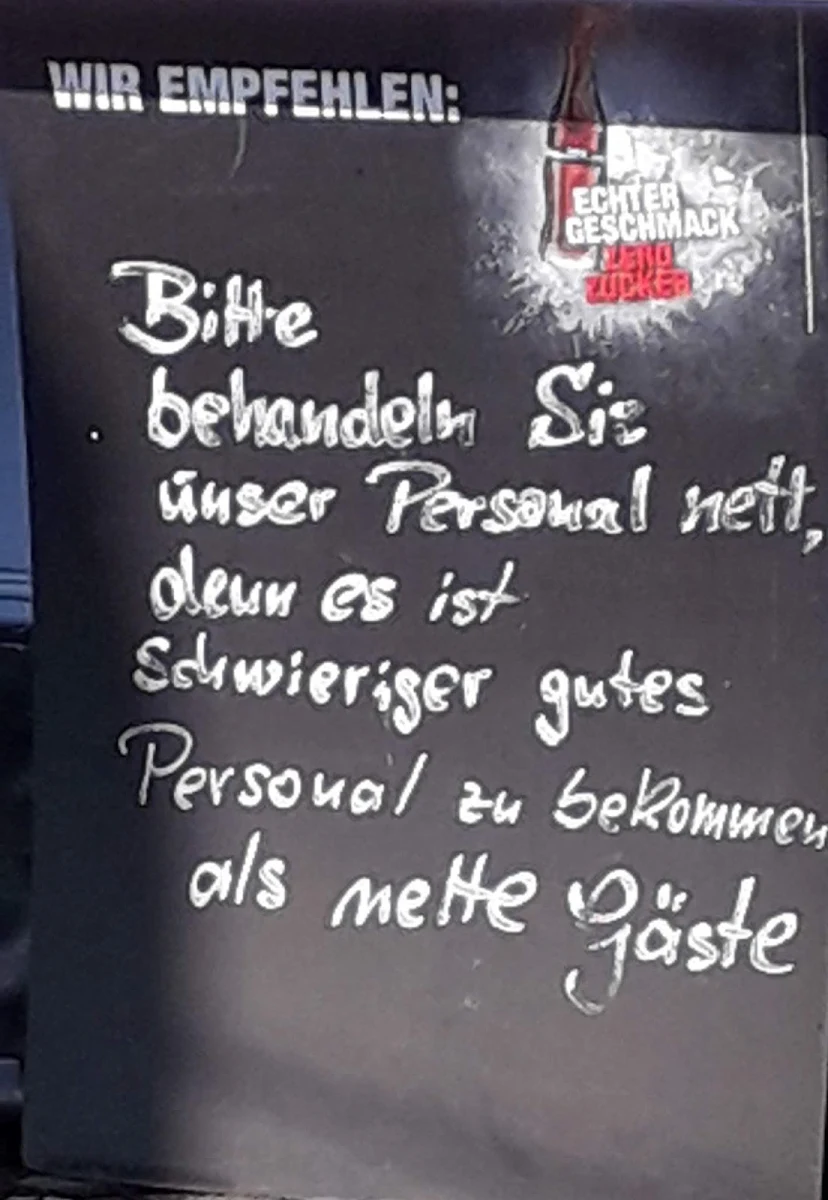 WIR EMPFEHLEN:
ECHTER
GESCHMACK
ZERO
ZUCKER
Bitte
behandeln Sie
unser Personal nett,
denn es ist
schwieriger gutes
Personal zu bekommen
als nette Gäste